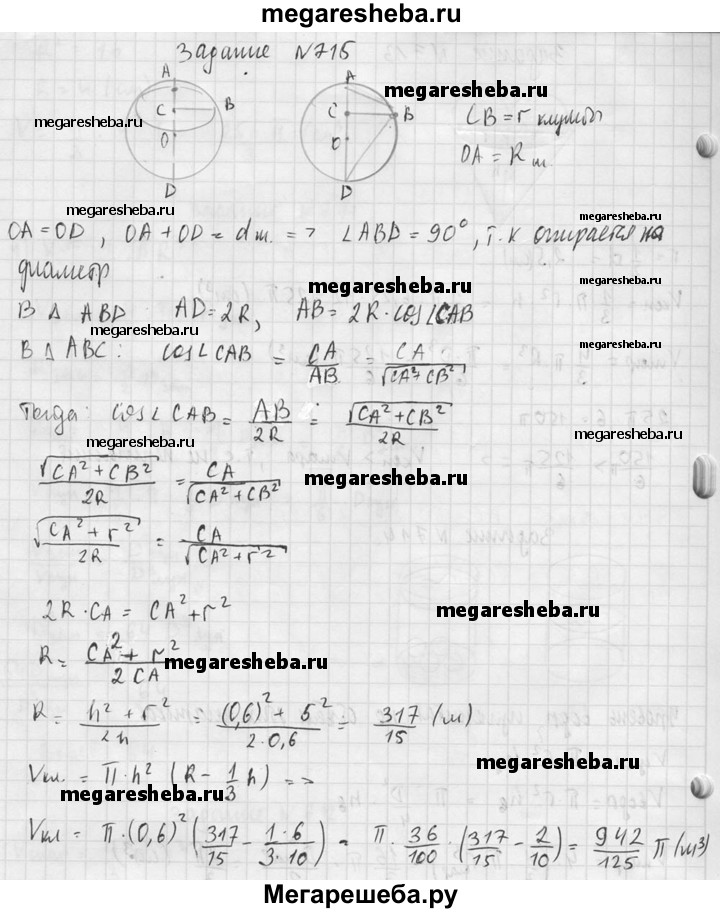 megaresheba.ru
Задание N715
A
B
C
O
D
A
C
B
O
D
megaresheba.ru
megaresheba.ru
CB = r
OA = R ш.
megaresheba.ru
OA = OD, OA + OD = d ш. => ∠ABD = 90°, т.к опирается на
диаметр
megaresheba.ru
В Δ ABD AD = 2R, AB = 2R · cos∠CAB
megaresheba.ru
В Δ ABC: cos∠CAB = CA/AB = CA/√(CA²+CB²)
megaresheba.ru
Тогда: cos∠CAB = AB/2R = √(CA²+CB²)/2R
megaresheba.ru
√(CA²+CB²)/2R = CA/√(CA²+CB²)
megaresheba.ru
√(CA²+r²)/2R = CA/√(CA²+r²)
2R·CA = CA²+r²
megaresheba.ru
R = (CA²+r²)/2CA
megaresheba.ru
R = (h²+r²)/2h = ((0,6)²+5²)/(2·0,6) = 317/15 (м)
megaresheba.ru
Vкл. = П·h² (R - 1/3 h) =>
megaresheba.ru
Vкл = П·(0,6)² (317/15 - (1·6)/(3·10)) = П · 36/100 · (317/15 - 2/10) = 942/125 П (м³)
Мегарешеба.ру